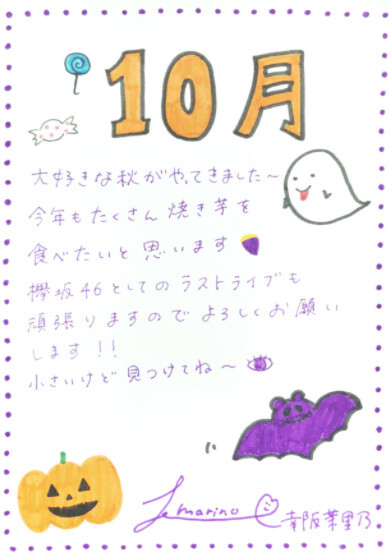 10月
大好きな秋がやってきました〜
今年もたくさん焼き芋を
食べたいと思います
欅坂46としてのラストライブも
頑張りますのでよろしくお願い
します!!
小さいけど見つけてね〜
marino
幸阪茉里乃